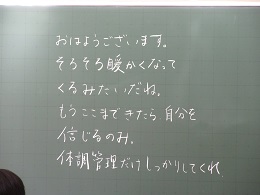 おはようございます。
そろそろ暖かくなって
くるみたいだね。
もうここまできたら自分を
信じるのみ。
体調管理だけしっかりしてくれ